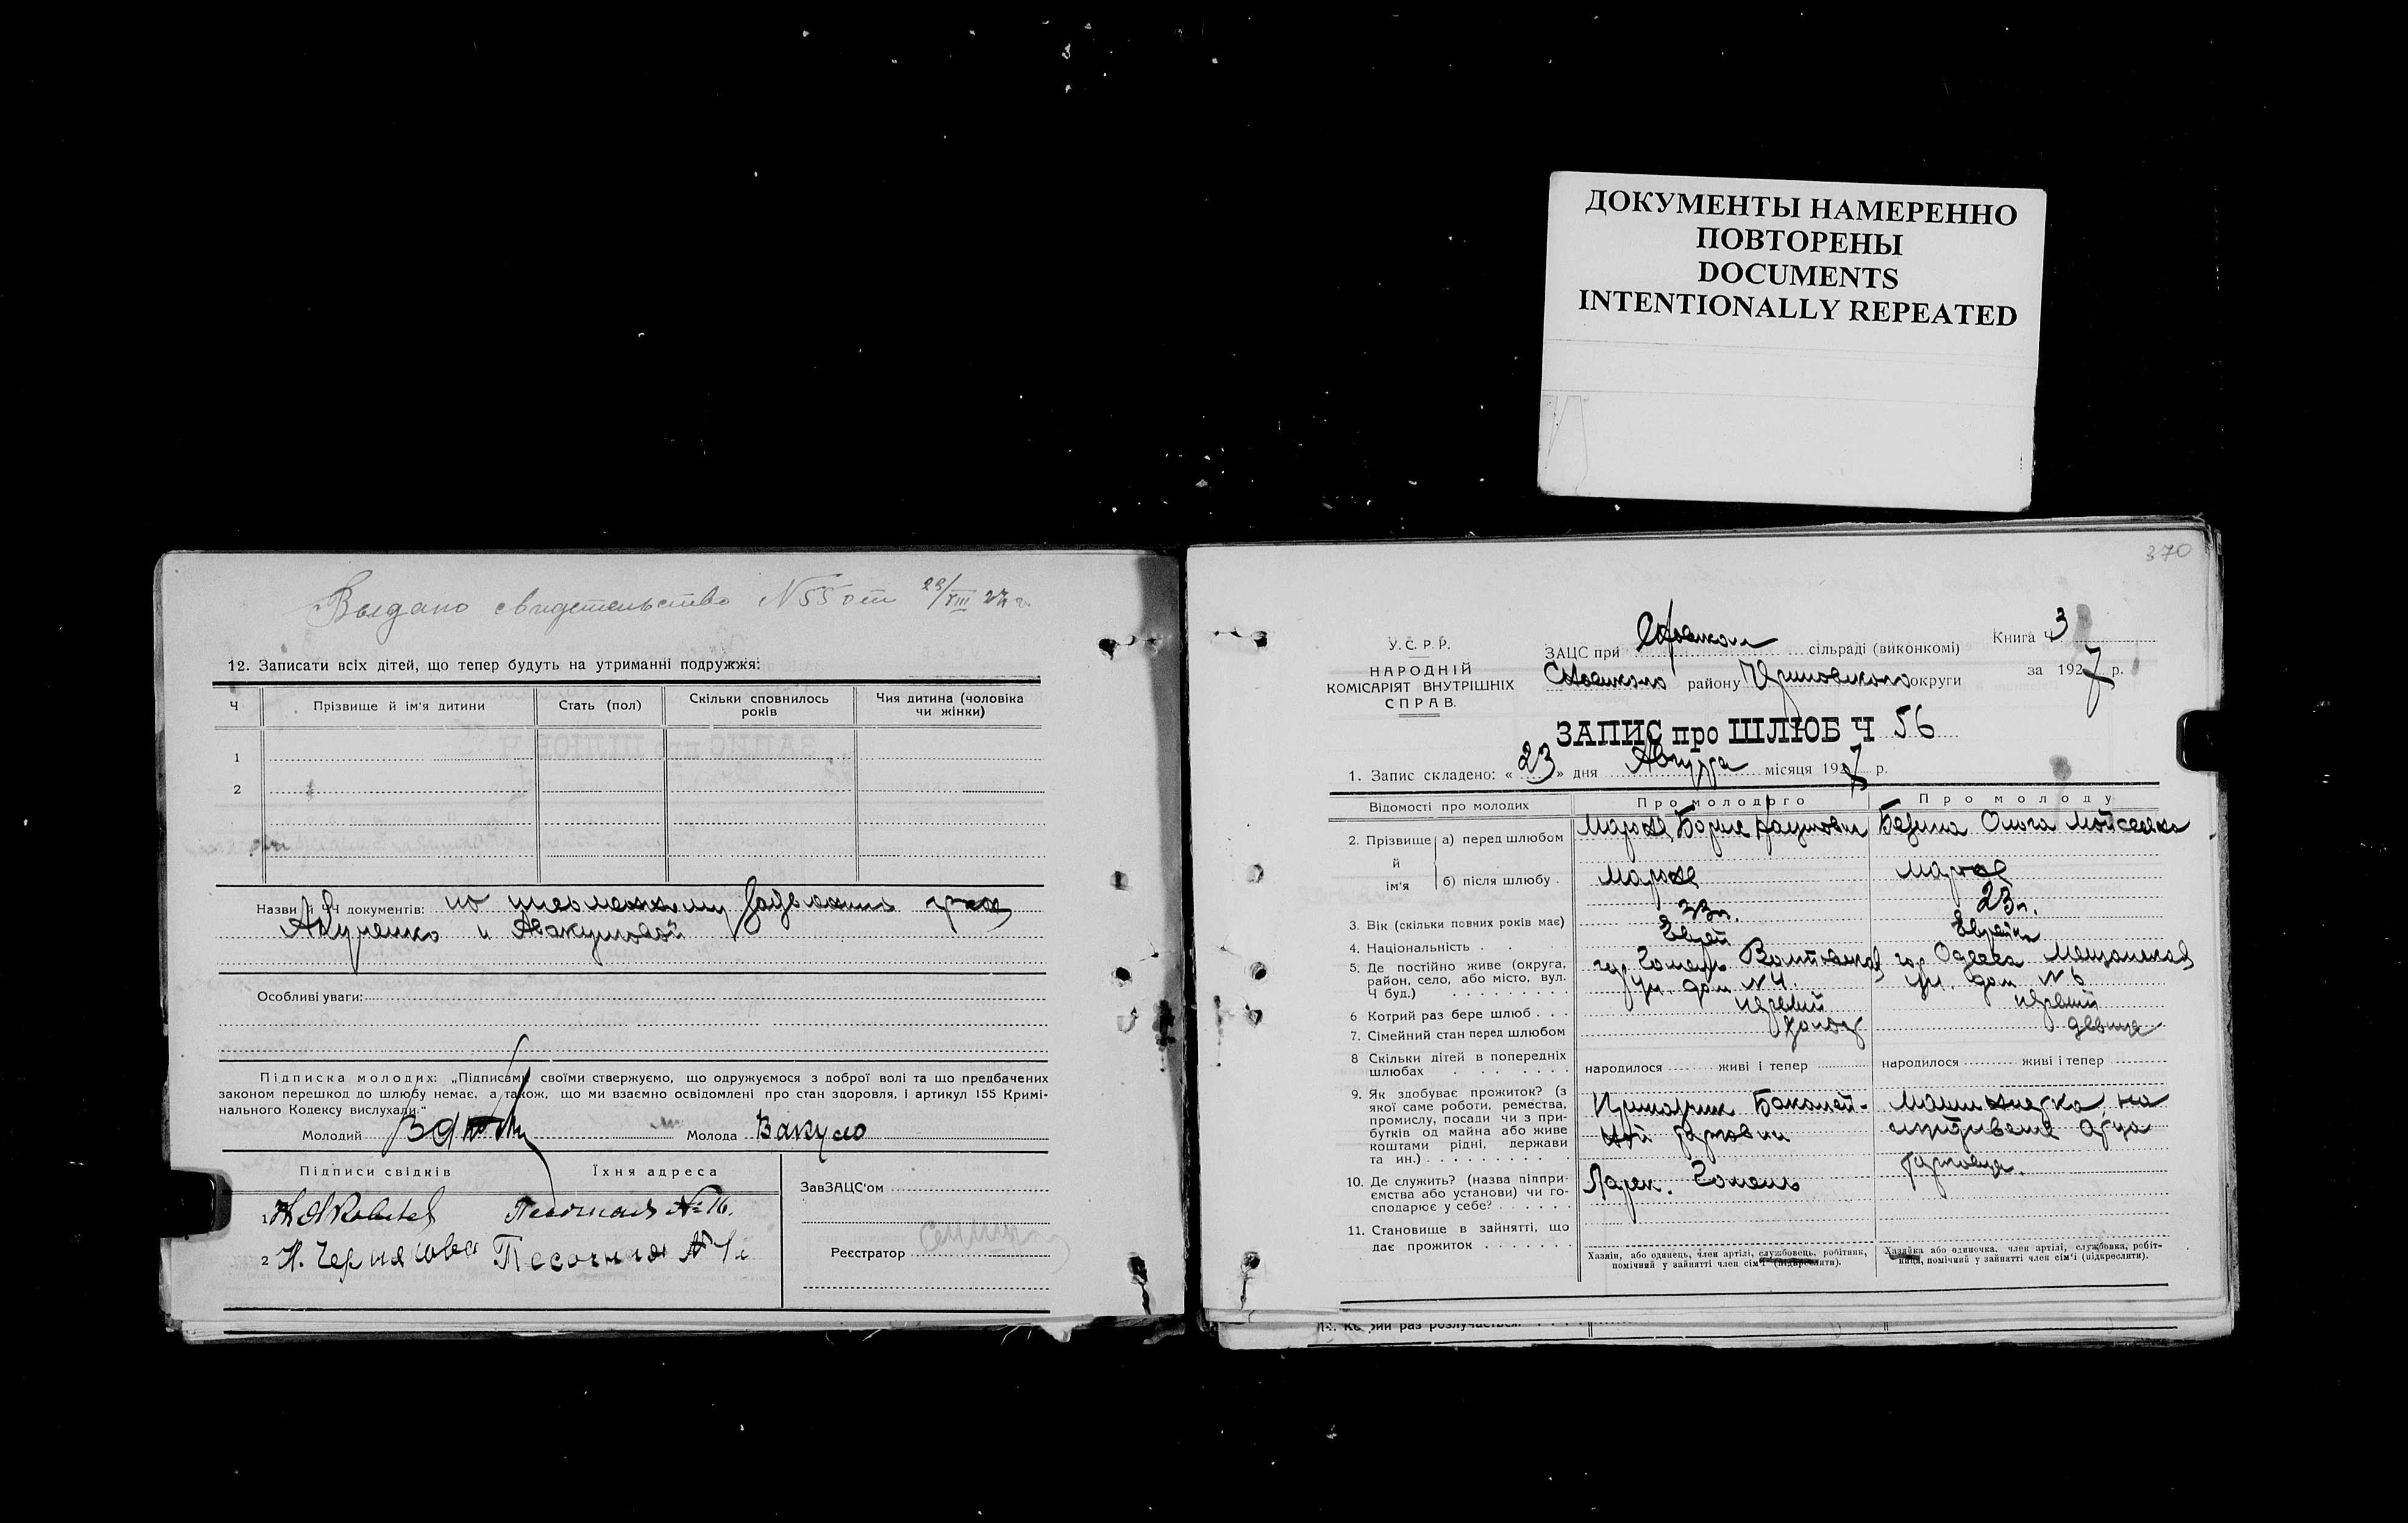 ДОКУМЕНТЫ НАМЕРЕННО
ПОВТОРЕНЫ
DOCUMENTS
INTENTIONALLY REPEATED
Выдано свидетельство N 55 от 23/VIII 27 г.
12. Записати всіх дітей, що тепер будуть на утриманні подружжя:
Ч Прізвище й ім'я дитини Стать (пол) Скільки сповнилось років Чия дитина (чоловіка чи жінки)
1
2
Назви й ЧЧ документів: по
и Авакумовой
Особливі уваги:
Підписка молодих: „Підписами своїми стверджуємо, що одружуємося з доброї волі та що предбачених
законом перешкод до шлюбу немає, а також, що ми взаємно освідомлені про стан здоровля, і артикул 155 Кримі-
нального Кодексу вислухали."
Молодий Молода Вакуло
Підписи свідків Їхня адреса
1 Песочная № 16.
2 Н. Чернякова Песочная №
ЗавЗАЦС'ом
Реєстратор
370
У.С.Р.Р.
НАРОДНІЙ
КОМІСАРІЯТ ВНУТРІШНІХ
СПРАВ.
ЗАЦС при сільраді (виконкомі)
району округи
Книга ч 3
за 1927 р.
ЗАПИС про ШЛЮБ Ч 56
1. Запис складено: « 23 » дня Августа місяця 1927 р.
Відомості про молодих Про молодого Про молоду
2. Прізвище й ім'я а) перед шлюбом Борис Наумович Ольга
б) після шлюбу
3. Вік (скільки повних років має) 33 л. 23 л.
4. Національність Еврей Еврейка
5. Де постійно живе (округа,
район, село, або місто, вул.
Ч буд.) гор. Гомель ул. дом N 4. гор. Одесса Мещанская ул. дом N 6
6 Котрий раз бере шлюб первый первый
7. Сімейний стан перед шлюбом холост девица
8 Скільки дітей в попередніх
шлюбах народилося живі і тепер народилося живі і тепер
9. Як здобуває прожиток? (з
якої саме роботи, ремества,
промислу, посади чи з при-
бутків од майна або живе
коштами рідні, держави
та ин.) Приказчик Бакалей-
ной торговли
на иждивении отца
торговца.
10. Де служить? (назва підпри-
ємства або установи) чи го-
сподарює у себе? Ларек. Гомель
11. Становище в зайнятті, що
дає прожиток
Хазяїн, або одинець, член артілі, службовець, робітник,
помічний у зайнятті член сім'ї (підкреслити).
Хазяйка або одиночка, член артілі, службовка, робіт-
ниця, помічний у зайнятті член сім'ї (підкреслити).